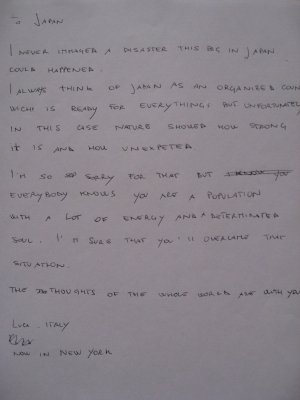 To JAPAN
I NEVER IMMAGER A DISASTER THIS BIG IN JAPAN
COULD HAPPENER.
I ALWAYS THINK OF JAPAN AS AN ORGANIZED COUN
WICHI IS READY FOR EVERYTHINGS BUT UNFORTUNATEL
IN THIS CASE NATURE SHOWED HOW STRONG
IT IS AND HOW UNEXPETER.
I'M SO SORRY FOR THAT BUT YOU
EVERYBODY KNOWS YOU ARE A POPULATION
WITH A LOT OF ENERGY AND A DETERMINATED
SOUL. I'M SURE THAT YOU'LL OVERCOME THAT
SITUATION.
THE THOUGHTS OF THE WHOLE WORLD ARE WITH YOU
LUCA. ITALY
NOW IN NEW YORK